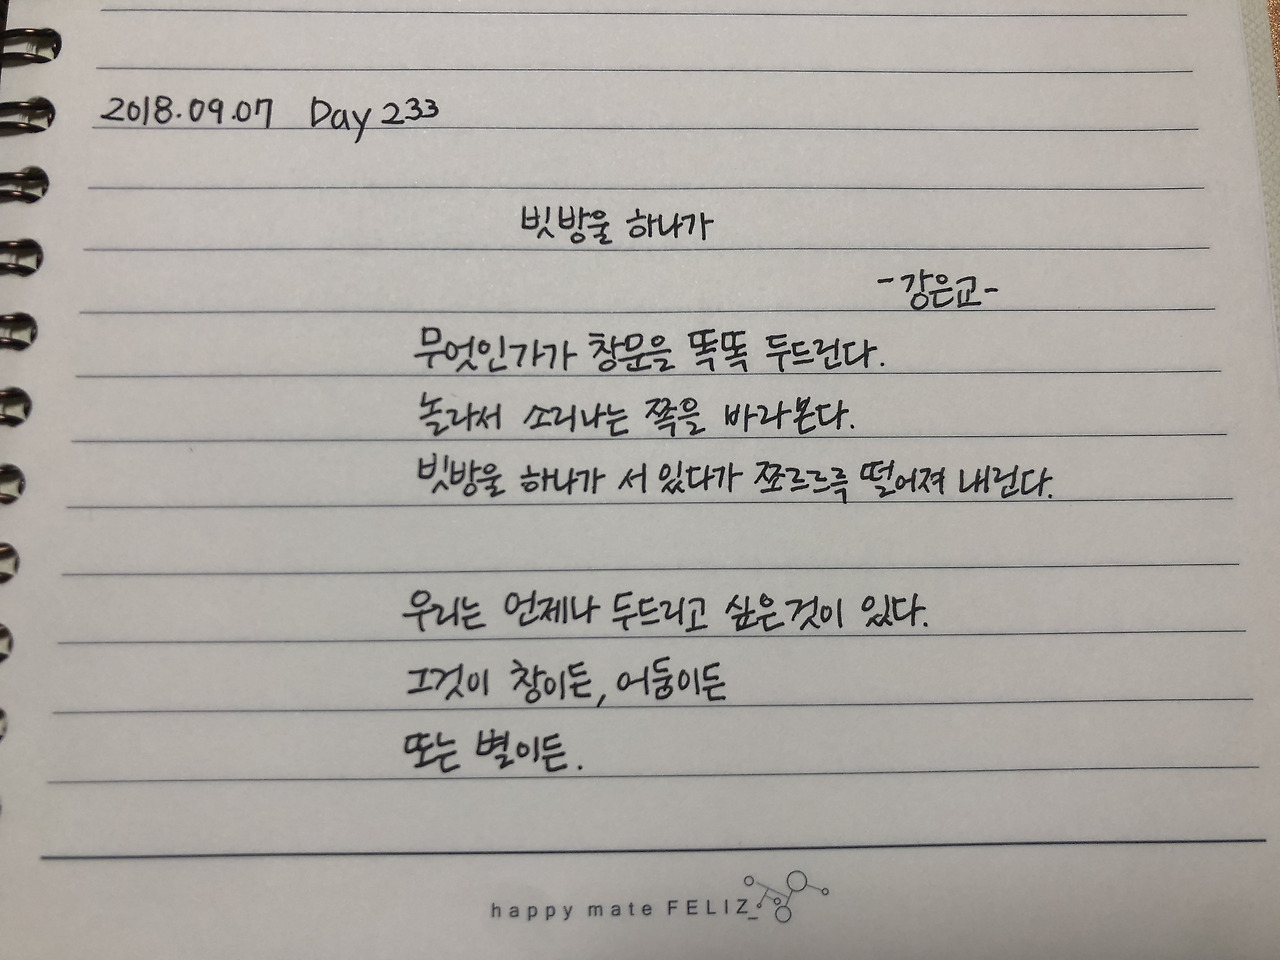 2018.09.07 Day 233
빗방울 하나가
-강은교-
무엇인가가 창문을 똑똑 두드린다.
놀라서 소리나는 쪽을 바라본다.
빗방울 하나가 서 있다가 쪼르르륵 떨어져 내린다.
우리는 언제나 두드리고 싶은것이 있다.
그것이 창이든, 어둠이든
또는 별이든.
happy mate FELIZ_